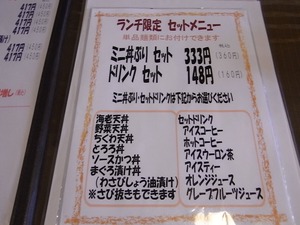 417円(450円)
417円(450円)
417円(450円)
417円(450円)
417円(450円)
ランチ限定 セットメニュー
単品麺類にお付けできます
ミニ丼ぶり セット 333円(360円)
ドリンク セット 148円(160円)
ミニ丼ぶり・セットドリンクは下記からお選びください
海老天丼
野菜天丼
ちくわ天丼
とろろ丼
ソースかつ丼
まぐろ漬け丼
(わさびしょう油漬け)
※さび抜きもできます
セットドリンク
アイスコーヒー
ホットコーヒー
アイスウーロン茶
アイスティー
オレンジジュース
グレープフルーツジュース